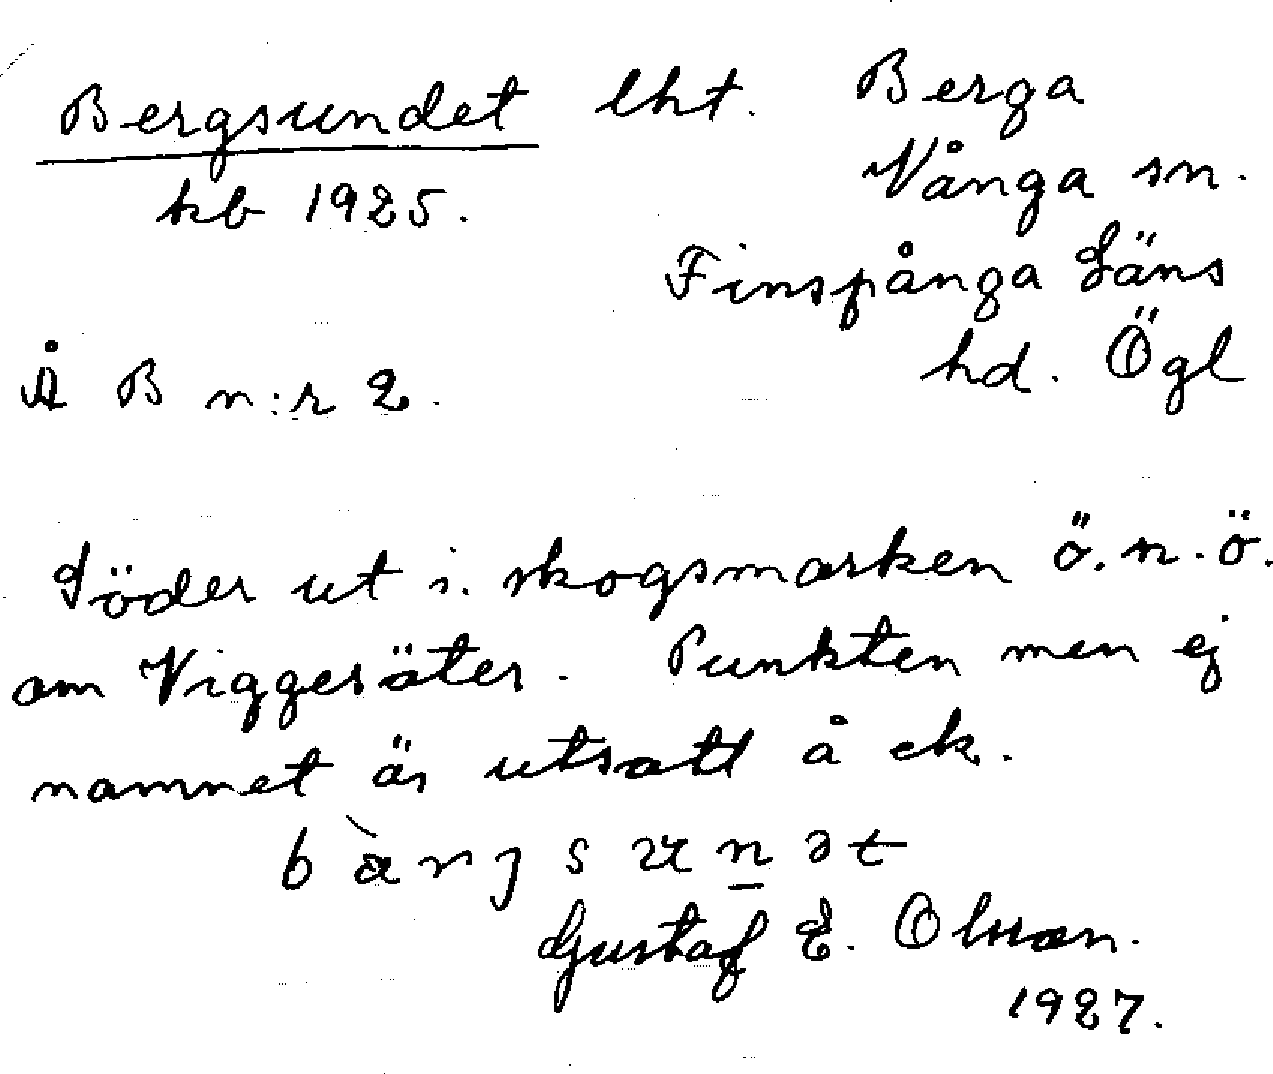 Bergsundet lht. Berga
Vånga sn.
kb 1925.
Finspånga Läns
hd. Ögl
Å B n:r 2.
Söder ut i. skogsmarken ö.n.ö.
om Viggesäter. Punkten men ej
namnet är utsatt å ek.
bàrjsunət
Gustaf E. Olsson.
1927.